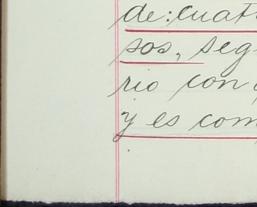 de: cuat
sos, seg
rio con
y es com